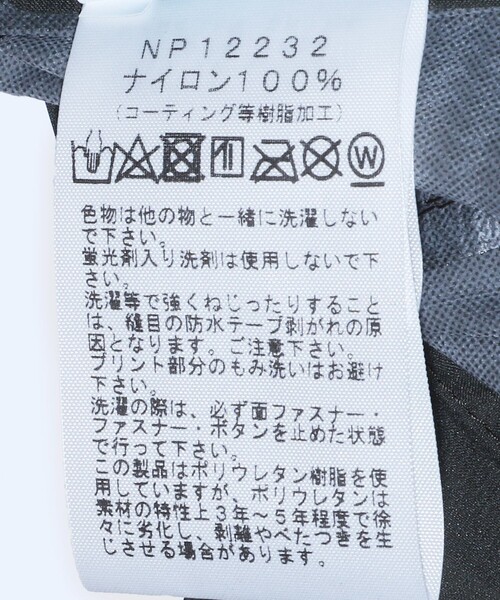 NP12232
ナイロン100%
(コーティング等樹脂加工)
W
色物は他の物と一緒に洗濯しない
で下さい。
蛍光剤入り洗剤は使用しないで下
さい。
洗濯等で強くねじったりすること
は、縫目の防水テープ剥がれの原
因となります。ご注意下さい。
プリント部分のもみ洗いはお避け
下さい。
洗濯の際は、必ず面ファスナー・
ファスナー・ボタンを止めた状態
で行って下さい。
この製品はポリウレタン樹脂を使
用していますが、ポリウレタンは
素材の特性上3年～5年程度で徐
々に劣化し、剥離やべたつきを生
じさせる場合があります。